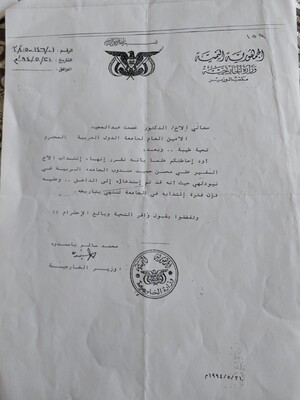 الجمهورية اليمنية
وزارة الخارجية
مكتب الوزير
الرقم :
التاريخ :
الموافق :
معالي الاخ/ الدكتور عصمت عبدالمجيد
الامين العام لجامعة الدول العربية المحترم
تحية طيبة .. وبعد،،
اود إحاطتكم علما بأنه تقرر إنهاء إنتداب الاخ
السفير علي محسن حميد مندوب الجامعة العربية في
نيودلهي حيث انه قد تم إستدعاؤه إلى الداخل .. وعليه
فإن فترة إنتدابه في الجامعة تنتهي بتاريخه .
وتفضلوا بقبول وافر التحية وبالغ الإحترام ،،
محمد سالم باسندوه
وزير الخارجية
١٩٩٤/٥/٢١م